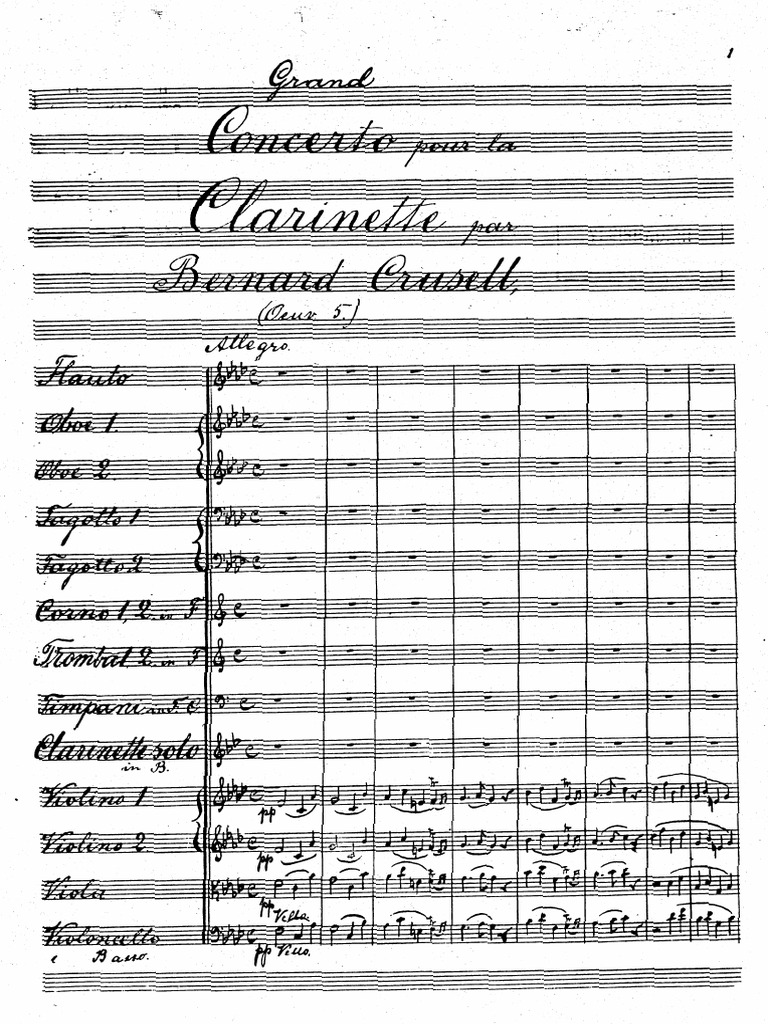 1
Grand
Concerto pour la
Clarinette par
Bernard Crusell,
(Oeuv 5.)
Allegro.
Flauto
Oboe 1.
Oboe 2.
Fagotto 1
Fagotto 2
Corno 1, 2 in F
Tromba 1, 2 in F
Timpani in F. C
Clarinette Solo
in B.
Violino 1
pp
Violino 2.
pp
Viola
pp
Vcllo.
Violoncello
e Basso.
pp Vcllo.